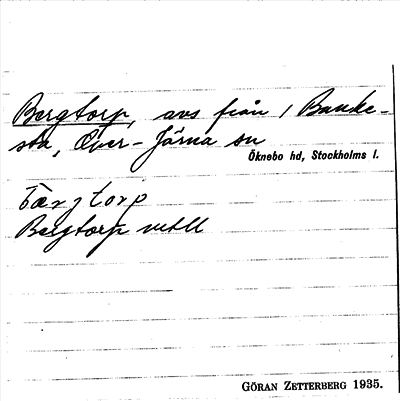 Bergtorp, avs från 1 Banke-
sta, Över-Järna sn
Öknebo hd, Stockholms l.
bærjtorp
Bergtorp vetll
GÖRAN ZETTERBERG 1935.